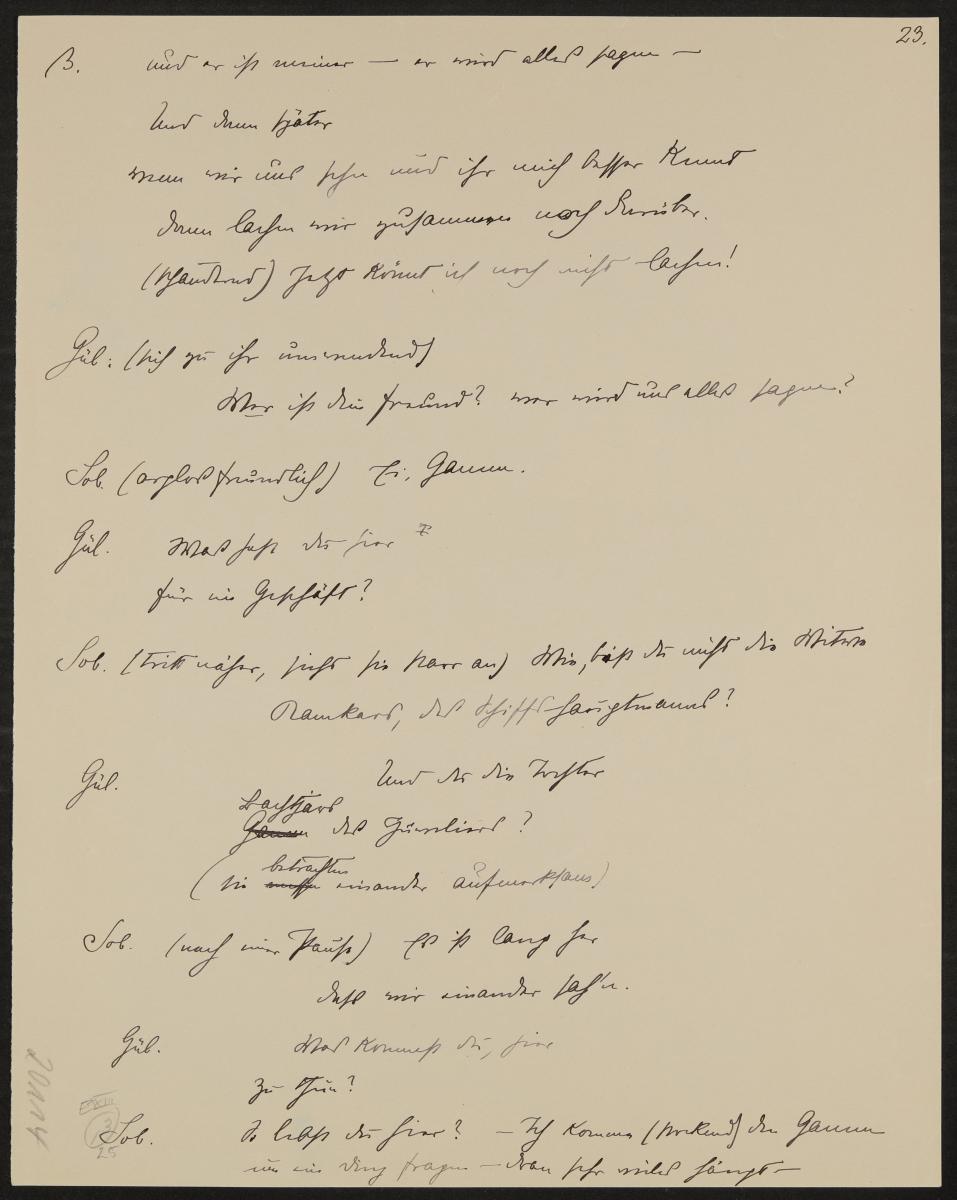 23.
B. und er ist meiner — er wird alles sagen —
Und dann später
wenn wir uns sehn und ihr mich besser kennt
dann lachen wir zusammen noch darüber.
(schaudernd) Jetzt könnt ich noch nicht lachen!
Gül: (sich zu ihr umwendend)
Wer ist dein Freund? wer wird uns alles sagen?
Sob. (arglos freundlich) Ei, Ganem.
Gül. Was hast du hier
für ein Geschäft?
Sob. (tritt näher, sieht sie starr an) Wie, bist du nicht die Witwe
Kamkars, des Schiffshauptmanns?
Gül. Und du die Tochter
Bachtjars
des Juweliers?
(sie betrachten einander aufmerksam)
Sob. (nach einer Pause) Es ist lang her
dass wir einander sah'n.
Gül. Was kommst du, hier
zu thun?
Sob. So lebst du hier? — Ich komme (stockend) den Ganem
um ein Ding fragen — dran sehr viel hängt —
E XIII
3
25